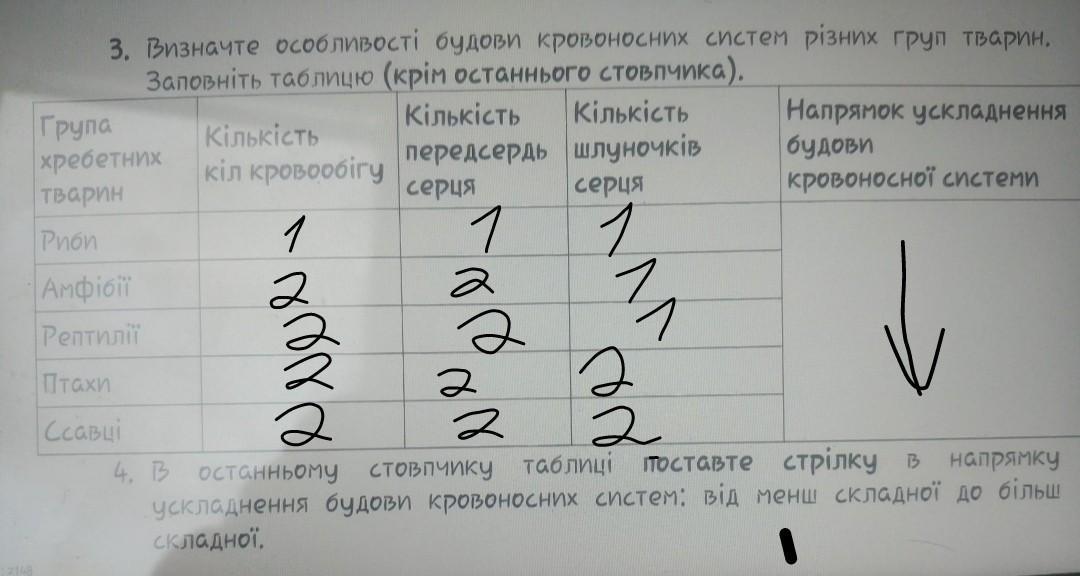 3. Визначте особливості будови кровоносних систем різних груп тварин.
Заповніть таблицю (крім останнього стовпчика).
Група хребетних тварин | Кількість кіл кровообігу | Кількість передсердь серця | Кількість шлуночків серця | Напрямок ускладнення будови кровоносної системи
Риби 1 1 1
Амфібії 2 2 1
Рептилії 2 2 1
Птахи 2 2 2
Ссавці 2 2 2
4. В останньому стовпчику таблиці поставте стрілку в напрямку
ускладнення будови кровоносних систем: від менш складної до більш
складної.